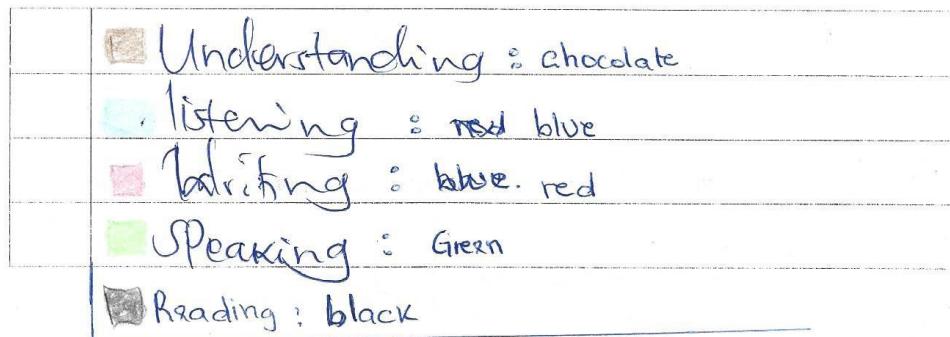 Understanding : chocolate
listening : red blue
Writing : blue. red
Speaking : Green
Reading : black